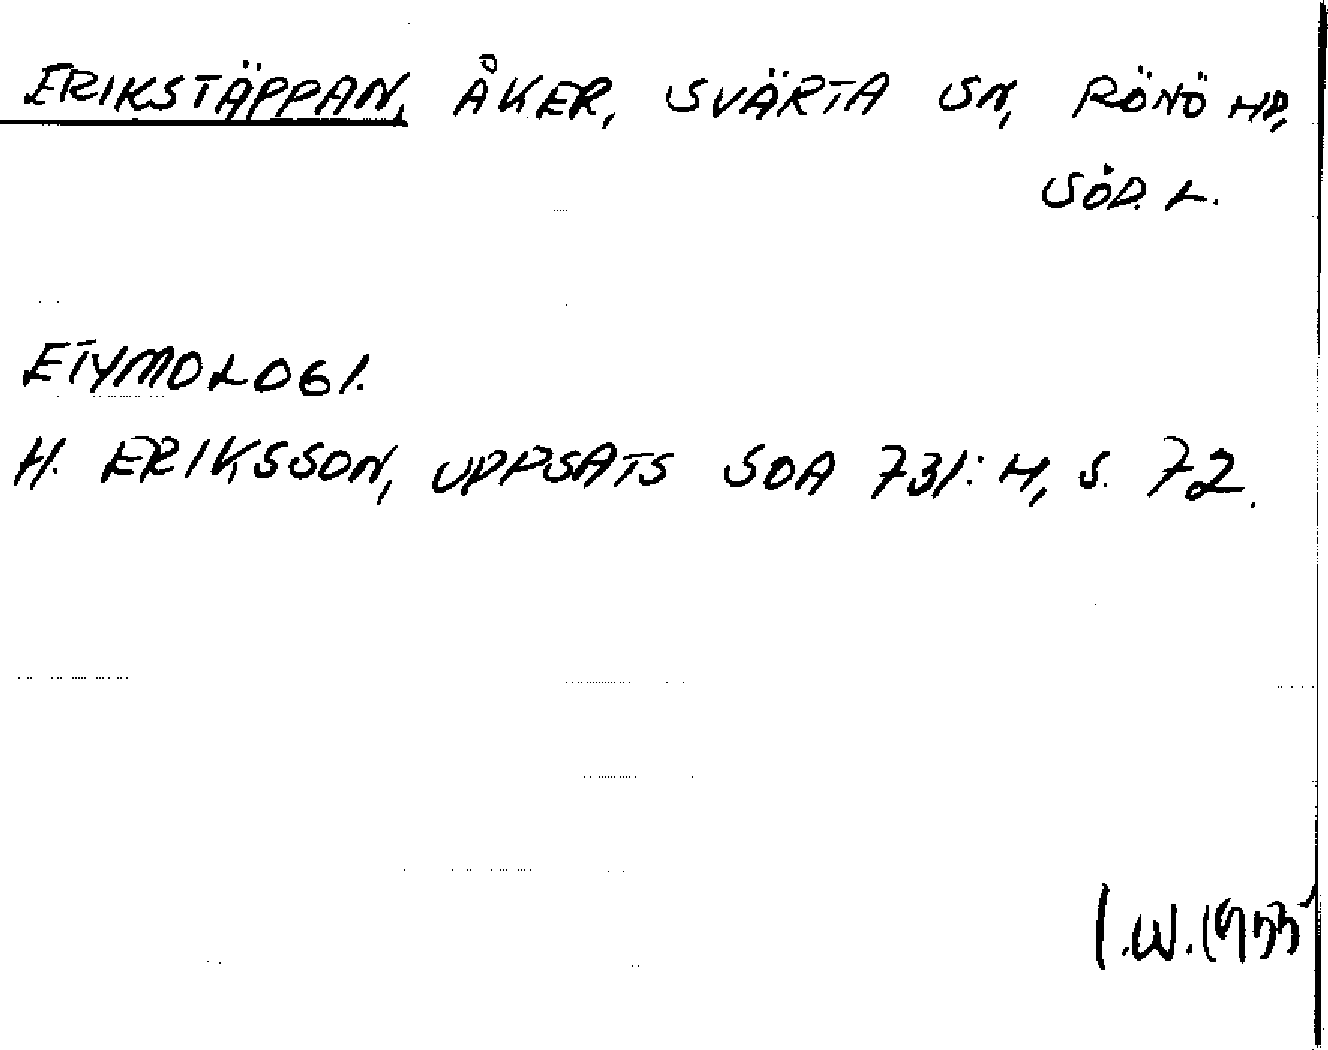 ERIKSTÄPPAN, ÅKER, SVÄRTA SN, RÖNÖ HD,
SÖD. L.
ETYMOLOGI.
H. ERIKSSON, UPPSATS SOA 731:H, S. 72.
I.W. 1955